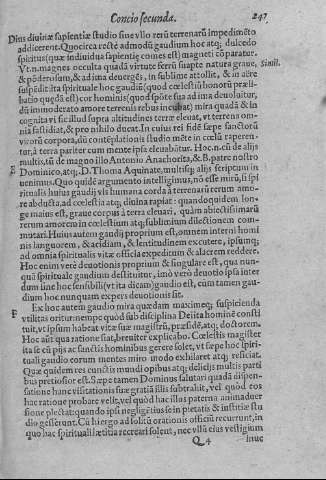 Concio secunda. 247
Dius divinæ sapientiæ studio sine vllo rerũ terrenarũ impedimẽto
addicerent. Quocirca rectè admodũ gaudium hoc atq; dulcedo
spiritus (quæ individua sapientiæ comes est) magneti cõparatur.
Vt .n. magnes occulta quadã virtute ferrũ suapte natura grave, Simil.
& põderosum, & ad ima devergẽs, in sublime attollit, & in aëre
suspẽdit: ita spirituale hoc gaudiũ (quod cœlestiũ honorũ præli-
batio quędã est) cor hominis (quod spõte sua ad ima devolvitur,
dũ immoderato amore terrenis rebus incubat) mira quadã & in
cognita vi sic illud supra altitudines terræ elevat, vt terrena om-
nia fastidiat, & pro nihilo ducat. In cuius rei fidẽ sæpe sanctorũ
virorũ corpora, dũ contẽplationis studio mẽte in cœlũ raperen-
tur, à terra pariter cum mente ipsa elevabãtur. Hoc .n. cũ de alijs
multis, tũ de magno illo Antonio Anachorita, & B. patre nostro
Dominico, atq; D. Thoma Aquinate, multisq; alijs scriptum in
venimus. Quo quidẽ argumento intelligimus, nõ esse mirũ, si spi
ritualis huius gaudij vis humana corda à terrenarũ rerum amo-
re abducta, ad cœlestia atq; divina rapiat: quandoquidem lon-
ge maius est, grave corpus à terra elevari, quàm abiectissimarũ
rerum amorem in cœlestium atq; sublimium dilectionem com-
mutari. Huius autem gaudij proprium est, omnem interni homi
nis languorem, & acidiam, & lentitudinem excutere, ipsumq;
ad omnia spiritualis vitæ officia expeditum & alacrem reddere.
Hoc enim verè devotionis proprium & singulare est, qua nun-
quã spirituale gaudium destituitur, imò verò devotio ipsa inter
dum sine hoc sensibili (vt ita dicam) gaudio est, cùm tamen gau-
dium hoc nunquam expers devotionis sit.
Ex hoc autem gaudio mira quædam maximeq; suspicienda
vtilitas oritur: nempe quòd sub disciplina Dei ita homine consti
tuit, vt ipsum habeat vitæ suæ magistrũ, præsidẽ, atq; doctorem.
Hoc aũt qua ratione fiat, breviter explicabo. Cœlestis magister
ita se cũ pijs ac sanctis hominibus gerere solet, vt sæpe hoc spiri-
tuali gaudio eorum mentes miro modo exhilaret atq; reficiat.
Quæ quidem res cunctis mundi opibus atq; delicijs multis parti
bus pretiosior est. Sæpe tamen Dominus salutari quadã dispen-
satione hanc visitationis suæ gratiã illis subtrahit, vel quòd eos
hac ratione probare velit, vel quòd hac illos paterna animadver
sione plectat: quando ipsi negligẽtius se in pietatis & iustitiæ stu
dio gesserunt. Cũ hi ergo ad solitũ orationis officiũ recurrunt, in
quo hac spirituali lætitia recreari solent, nec vllũ eius vestigium
Q 4 inve